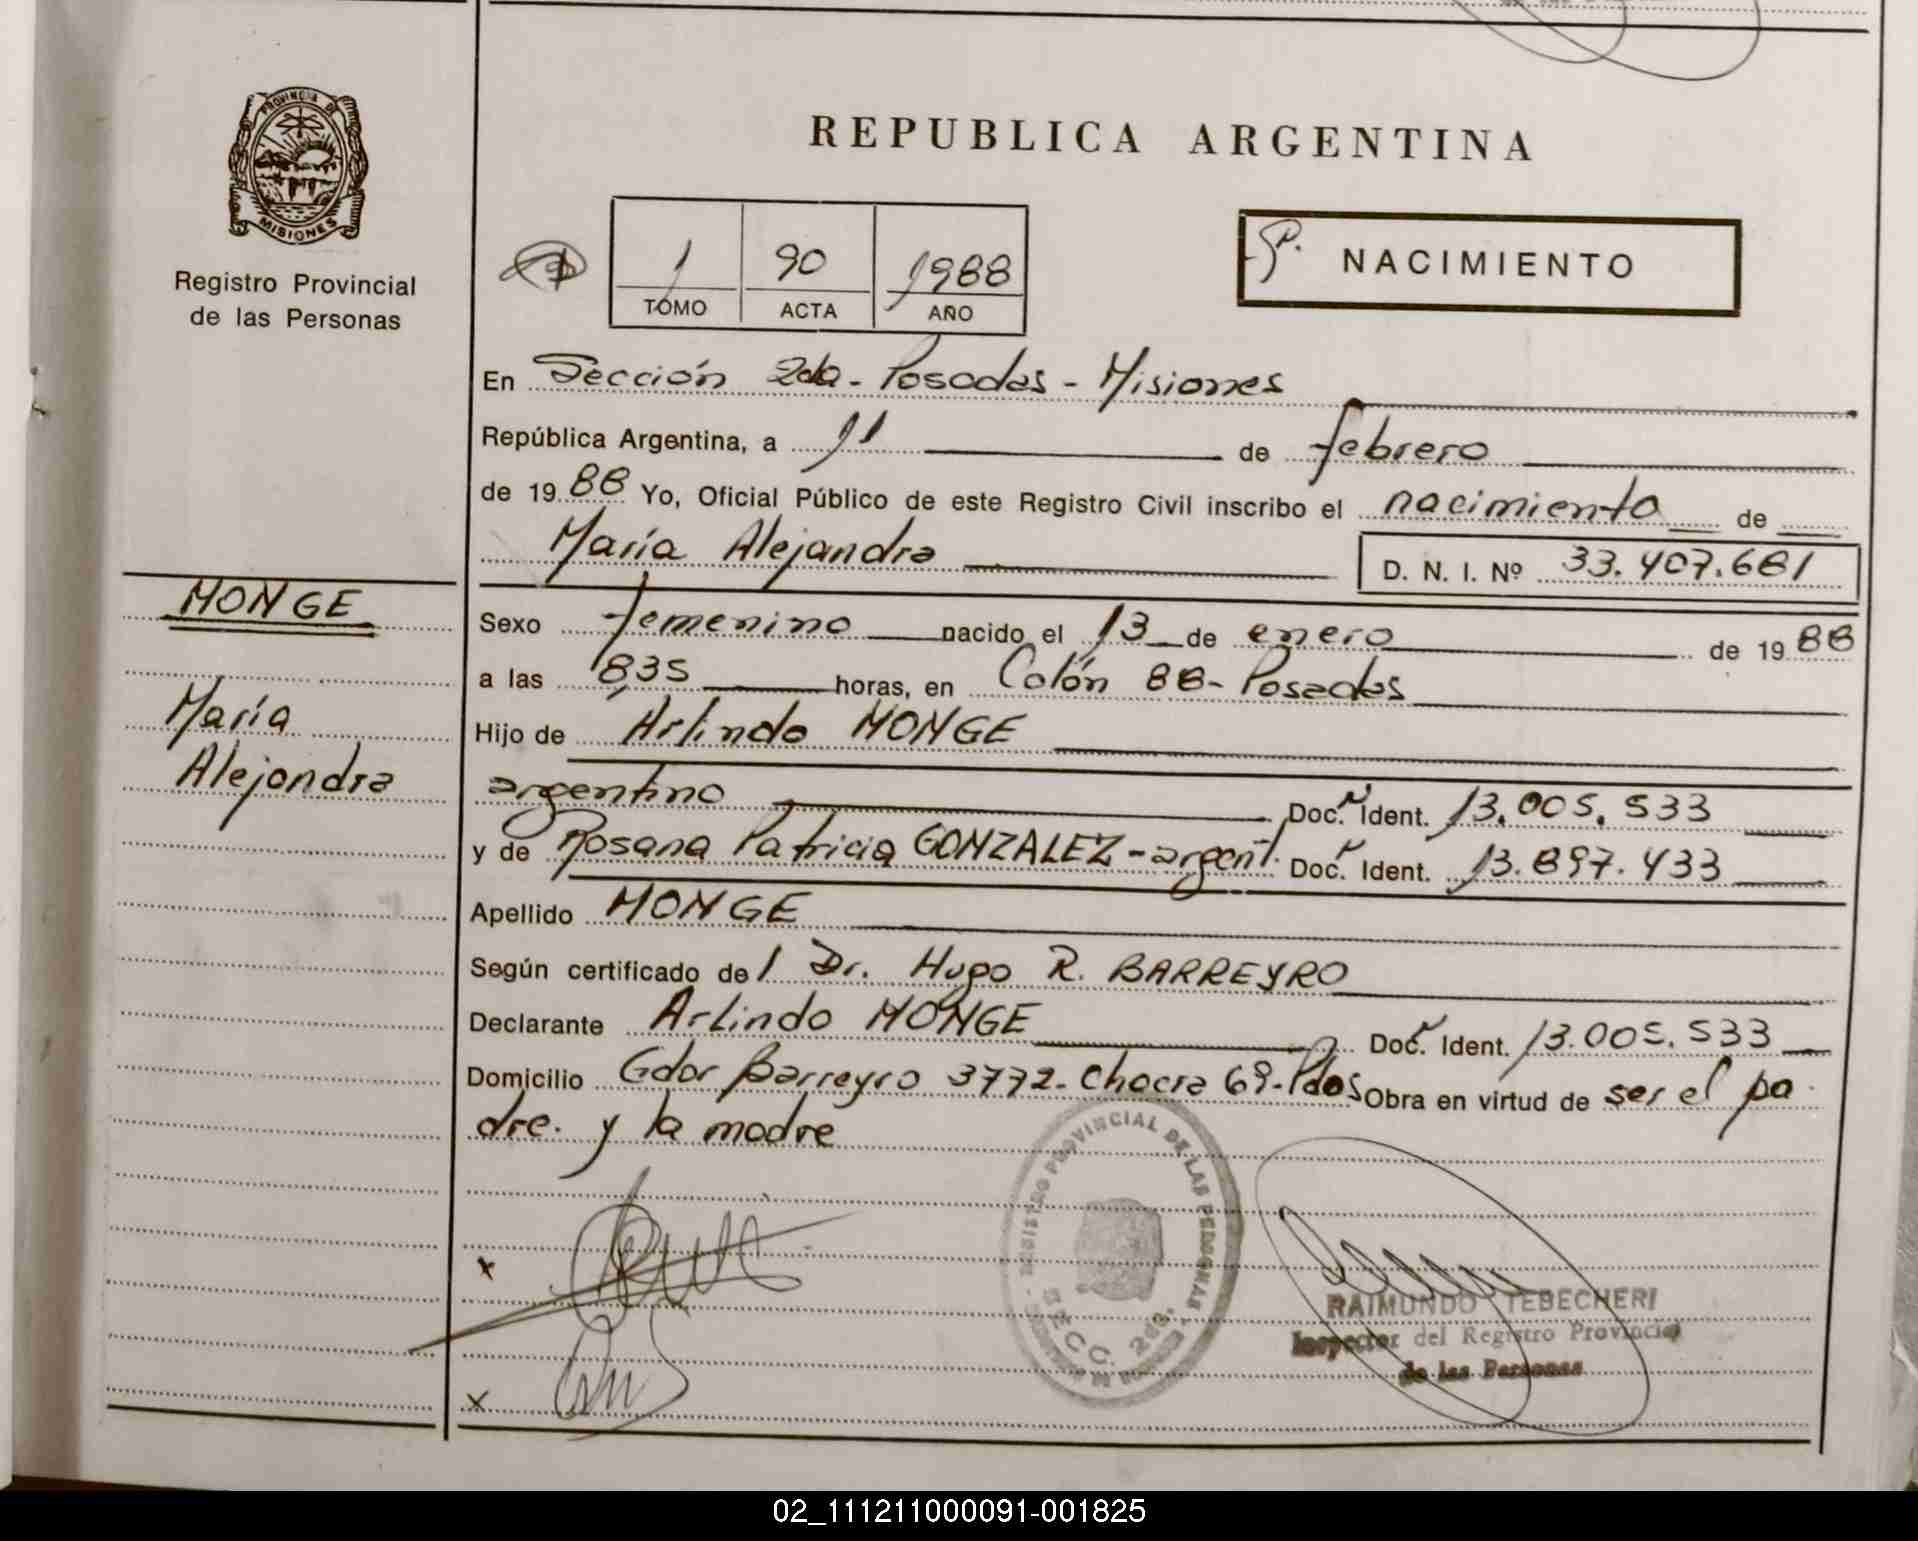 PROVINCIA DE
MISIONES
Registro Provincial
de las Personas
REPUBLICA ARGENTINA
1 90 1988
TOMO ACTA AÑO
NACIMIENTO
En Sección 2da - Posadas - Misiones
República Argentina, a 11 de febrero
de 19 88 Yo, Oficial Público de este Registro Civil inscribo el nacimiento de
María Alejandra D. N. I. Nº 33.407.681
MONGE
María
Alejandra
Sexo femenino nacido el 13 de enero de 19 88
a las 835 horas, en Colón 88 - Posadas
Hijo de Arlindo MONGE
argentino Doc. Ident. 13.005.533
y de Rosana Patricia GONZALEZ - argent. Doc. Ident. 13.897.433
Apellido MONGE
Según certificado del Dr. Hugo R. BARREYRO
Declarante Arlindo MONGE Doc. Ident. 13.005.533
Domicilio Gdor Barreyro 3772 - Chacra 69 - Pdas Obra en virtud de ser el pa-
dre. y la madre
REGISTRO PROVINCIAL DE LAS PERSONAS
SECC. 2da.
RAIMUNDO TEBECHERI
Inspector del Registro Provincial
de las Personas
x
x
02_111211000091-001825